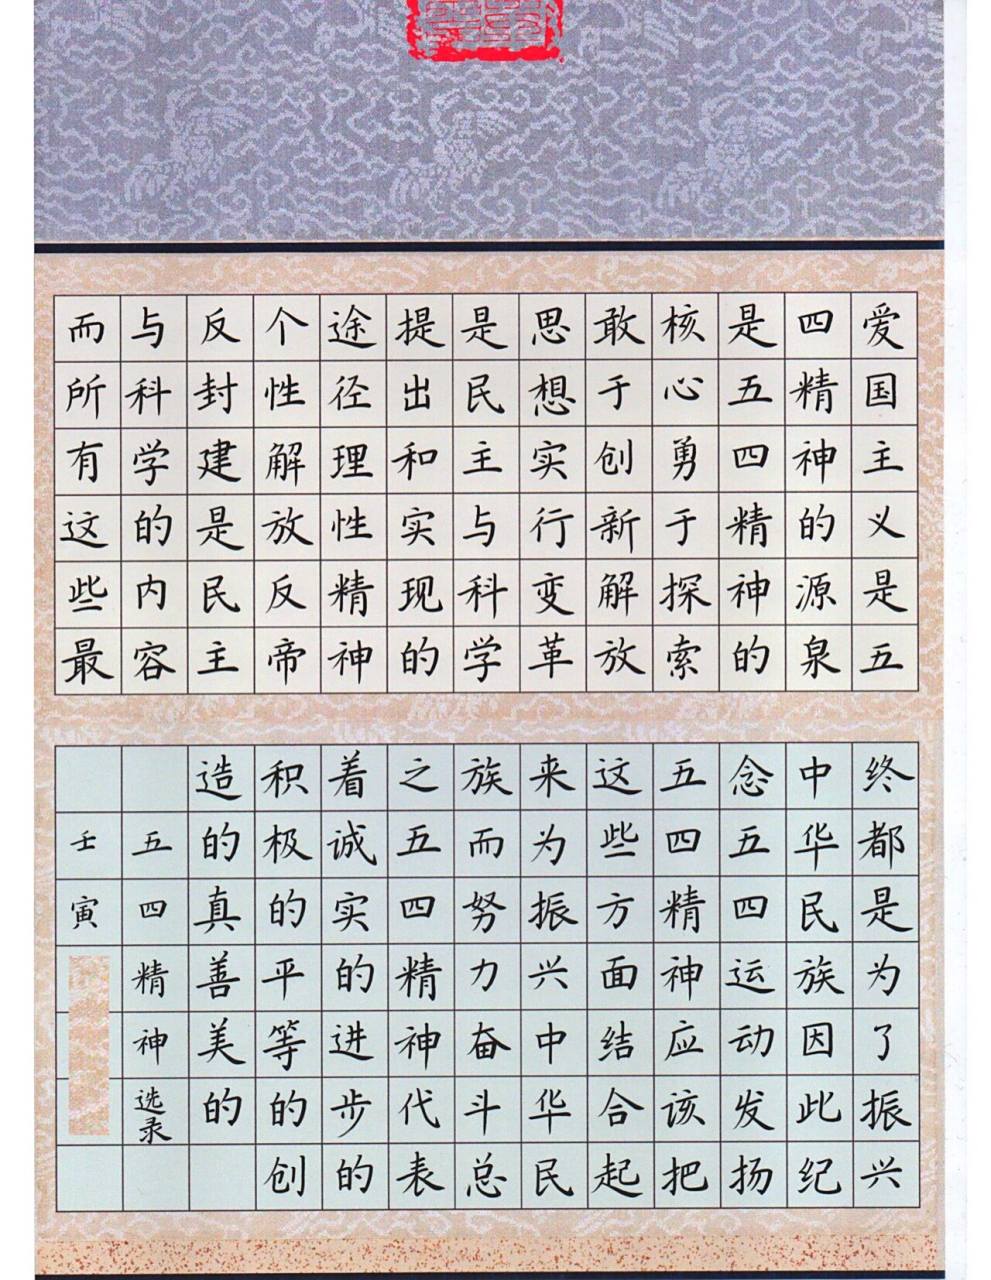 爱国主义是五
四精神的源泉
是五四精神的
核心勇于探索
敢于创新解放
思想实行变革
是民主与科学
提出和实现的
途径理性精神
个性解放反帝
反封建是民主
与科学的内容
而所有这些最
终都是为了振兴
中华民族因此纪
念五四运动发扬
五四精神应该把
这些方面结合起
来为振兴中华民
族而努力奋斗总
之五四精神代表
着诚实的进步的
积极的平等的创
造的真善美的
五四精神选录
壬寅